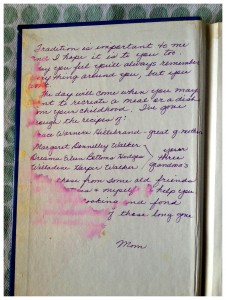 Tradition is important to me
and I hope it is to you too
say you felt you'll always remember
everything around you, but you
The day will come when you may
want to recreate a meal or a dish
from your childhood. I've gone
through the recipes of:
Warner Hillebrand - great grandmother
Margaret Donnelley Walker
Ellen Hodges
Walker
your
three
grandma's
those from some old friends
& myself to help you
cooking and fond
of those long gone
Mom